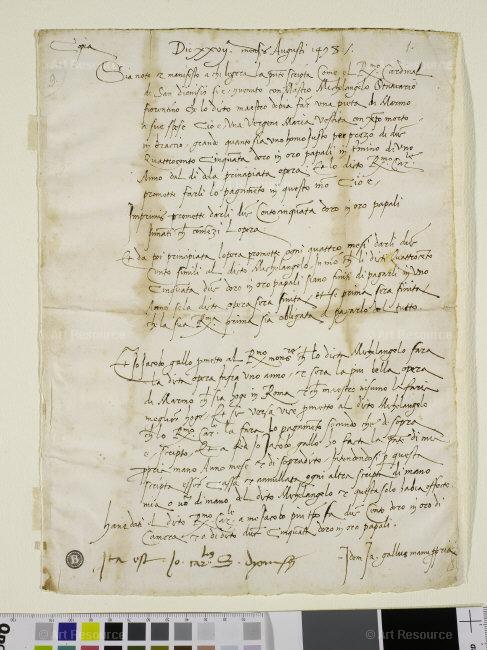 Copia
Die xxvij mensis Augusti 1498 /.
1.
9.
Sia noto et manifesto a chi legera la pnte scripta Come el Rmo Cardinal
di San dionisio si e convenuto con Mastro Michelangelo
fiorentino che lo dicto maestro debia far una pieta di Marmo
a sue spese Cio e una Vergene Maria vestita con xpo morto
in bracio grande quanto sia uno homo iusto per prezo di duc
Quattrocento Cinquanta doro in oro papali in termino di uno
Anno dal di dela principiata opera Et lo dicto Rmo Car le
promette farli lo pagamento in questo modo Cio e
Imprimis promette darli duc Centocinquanta doro in oro papali
innati che comenzi lopera
Et da poi principiata lopera promette ogni quattro mesi darli duc
Cento simili al dicto Michelangelo In modo che li dicti Quattrocento
Cinquanta duc doro in oro papali siano finiti di pagarli in uno
Anno se la dicta opera sera finita Et se prima sera finita
che la sua Rma prima sia obligata a pagarlo del tutto.
Et Io Iacobo gallo prometto al Rmo che lo dicto Michelangelo fara
la dicta opera infra uno anno et sera la piu bella opera
di Marmo che sia hoge in Roma et che maestro nisuno la faria
megliore hoge Et si versa vice prometto al dicto Michelangelo
che lo Rmo Car le li fara lo pagamento secundo che di sopra
e scripto Et a fede Io Iacobo gallo ho facta la pnte di mia
propria mano Anno mese et di sopradicto Intendendosi per questa
scripta esser cassa et annullata ogni altra scripta di mano
mia o vero di mano del dicto Michelangelo et questa solo habia effecto
Hane dati il dicto Rmo Car le a me Iacobo duc Cento doro in oro di
Camera et a di dicto duc Cinquanta doro in oro papali.
Ita est Io. car lis S. Dyonisii
Idem Ia. gallus manu ppria
B
© Art Resource
© Art Resource
© Art Resource
© Art Resource